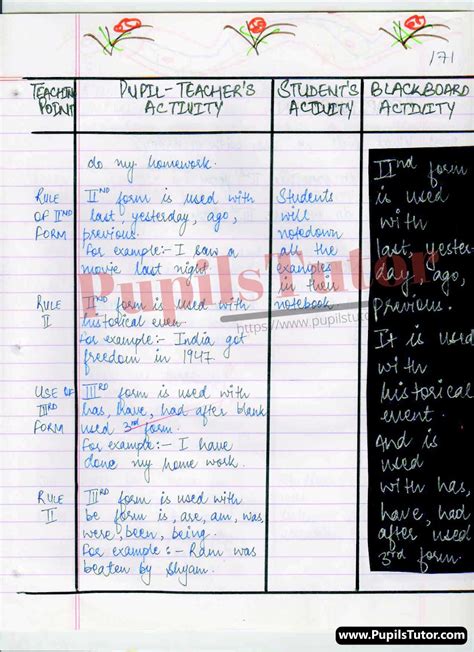 171
TEACHING POINT
PUPIL-TEACHER'S ACTIVITY
STUDENT'S ACTIVITY
BLACKBOARD ACTIVITY
do my homework.
RULE
OF IIND
FORM
IInd form is used with
last, yesterday, ago,
previous.
For example:- I saw a
movie last night
RULE
II
IInd form is used with
historical even
For example:- India got
freedom in 1947
USE OF
IIIRD
FORM
IIIrd form is used with
has, have, had after blank
used 3rd form.
For example:- I have
done my home work.
RULE
II
IIIrd form is used with
be form is, are, am, was,
were, been, being.
For example:- Ram was
beaten by Shyam.
Students
will
notedown
all the
examples
in their
notebook
IInd form
is used
with
last, yester-
day, ago,
previous.
It is
used
with
historical
event.
And is
used
with has,
have, had
after used
3rd form.
PupilsTutor
https://www.pupilstutor
www.PupilsTutor.com